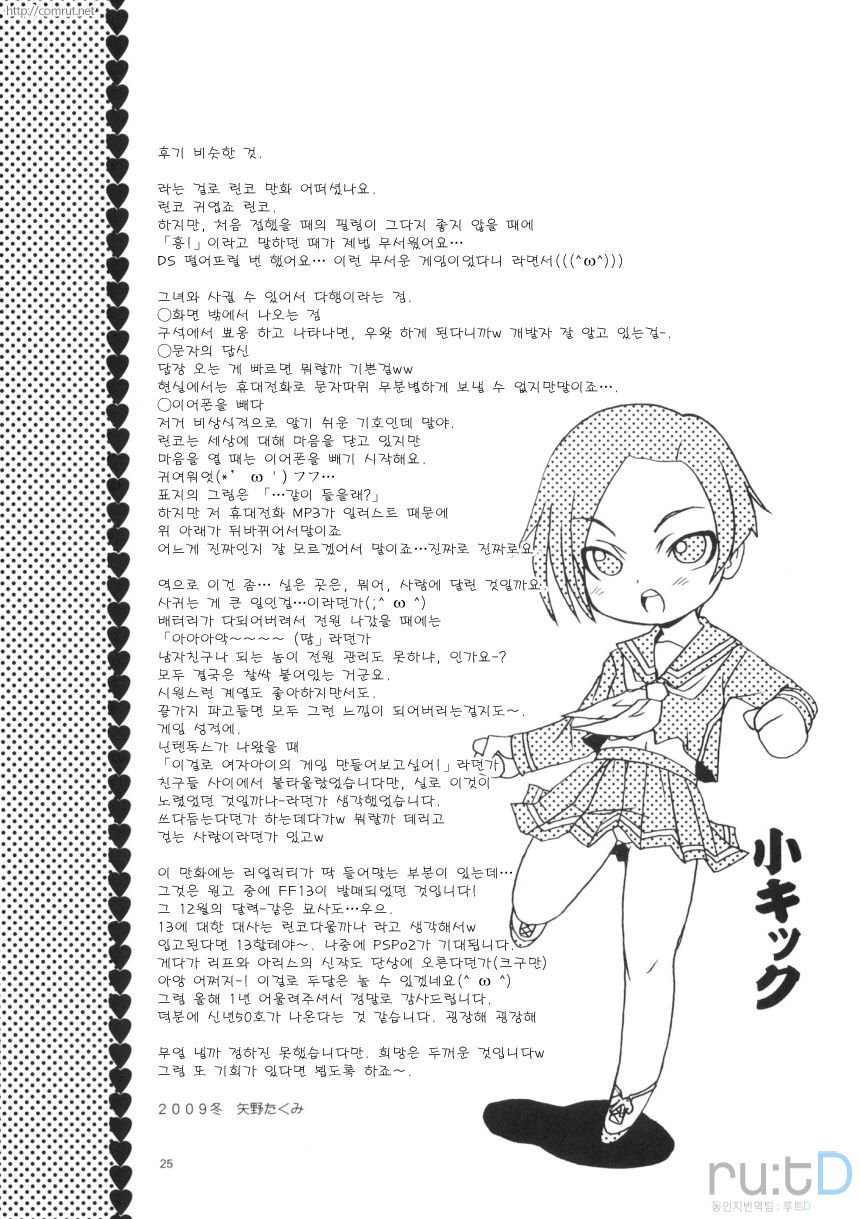 http://comrut.net
후기 비슷한 것.
라는 걸로 린코 만화 어떠셨나요.
린코 귀엽죠 린코.
하지만, 처음 접했을 때의 필링이 그다지 좋지 않을 때에
「흥!」이라고 말하던 때가 제법 무서웠어요…
DS 떨어뜨릴 번 했어요… 이런 무서운 게임이었다니 라면서(((^ω^)))
그녀와 사귈 수 있어서 다행이라는 점.
○화면 밖에서 나오는 점
구석에서 뾰옹 하고 나타나면, 우왓 하게 된다니까w 개발자 잘 알고 있는걸-.
○문자의 답신
답장 오는 게 빠르면 뭐랄까 기쁜걸ww
현실에서는 휴대전화로 문자따위 무분별하게 보낼 수 없지만말이죠….
○이어폰을 빼다
저거 비상식적으로 알기 쉬운 기호인데 말야.
린코는 세상에 대해 마음을 닫고 있지만
마음을 열 때는 이어폰을 빼기 시작해요.
귀여워엇(*’ω＇)フフ…
표지의 그림은 「…같이 들을래?」
하지만 저 휴대전화 MP3가 일러스트 때문에
위 아래가 뒤바뀌어서말이죠
어느게 진짜인지 잘 모르겠어서 말이죠…진짜로 진짜로요
역으로 이건 좀… 싶은 곳은, 뭐어, 사람에 달린 것일까요
사귀는 게 큰 일인걸…이라던가(;^ω^)
배터리가 다되어버려서 전원 나갔을 때에는
「아아아악～～～～ (땅」라던가
남자친구나 되는 놈이 전원 관리도 못하냐, 인가요-?
모두 결국은 찰싹 붙어있는 거군요.
시원스런 계열도 좋아하지만서도.
끝가지 파고들면 모두 그런 느낌이 되어버리는걸지도～.
게임 성격에.
닌텐독스가 나왔을 때
「이걸로 여자아이의 게임 만들어보고싶어!」라던가
친구들 사이에서 불타올랐었습니다만, 실로 이것이
노렸었던 것일까나-라던가 생각했었습니다.
쓰다듬는다던가 하는데다가w 뭐랄까 데리고
걷는 사람이라던가 있고w
이 만화에는 리얼리티가 딱 들어맞는 부분이 있는데…
그것은 원고 중에 FF13이 발매되었던 것입니다!
그 12월의 달력-같은 묘사도…우으.
13에 대한 대사는 린코다울까나 라고 생각해서w
입고된다면 13할테야～. 나중에 PSPo2가 기대됩니다.
게다가 리프와 아리스의 신작도 단상에 오른다던가(크구만)
아앙 어쩌지-! 이걸로 두달은 놀 수 있겠네요(^ω^)
그럼 올해 1년 어울려주셔서 정말로 감사드립니다.
덕분에 신년50호가 나온다는 것 같습니다. 굉장해 굉장해
무얼 낼까 정하진 못했습니다만. 희망은 두꺼운 것입니다w
그럼 또 기회가 있다면 뵙도록 하죠～.
２００９冬　矢野たくみ
25
小キック
ru:tD
동인지번역팀 : 루트D